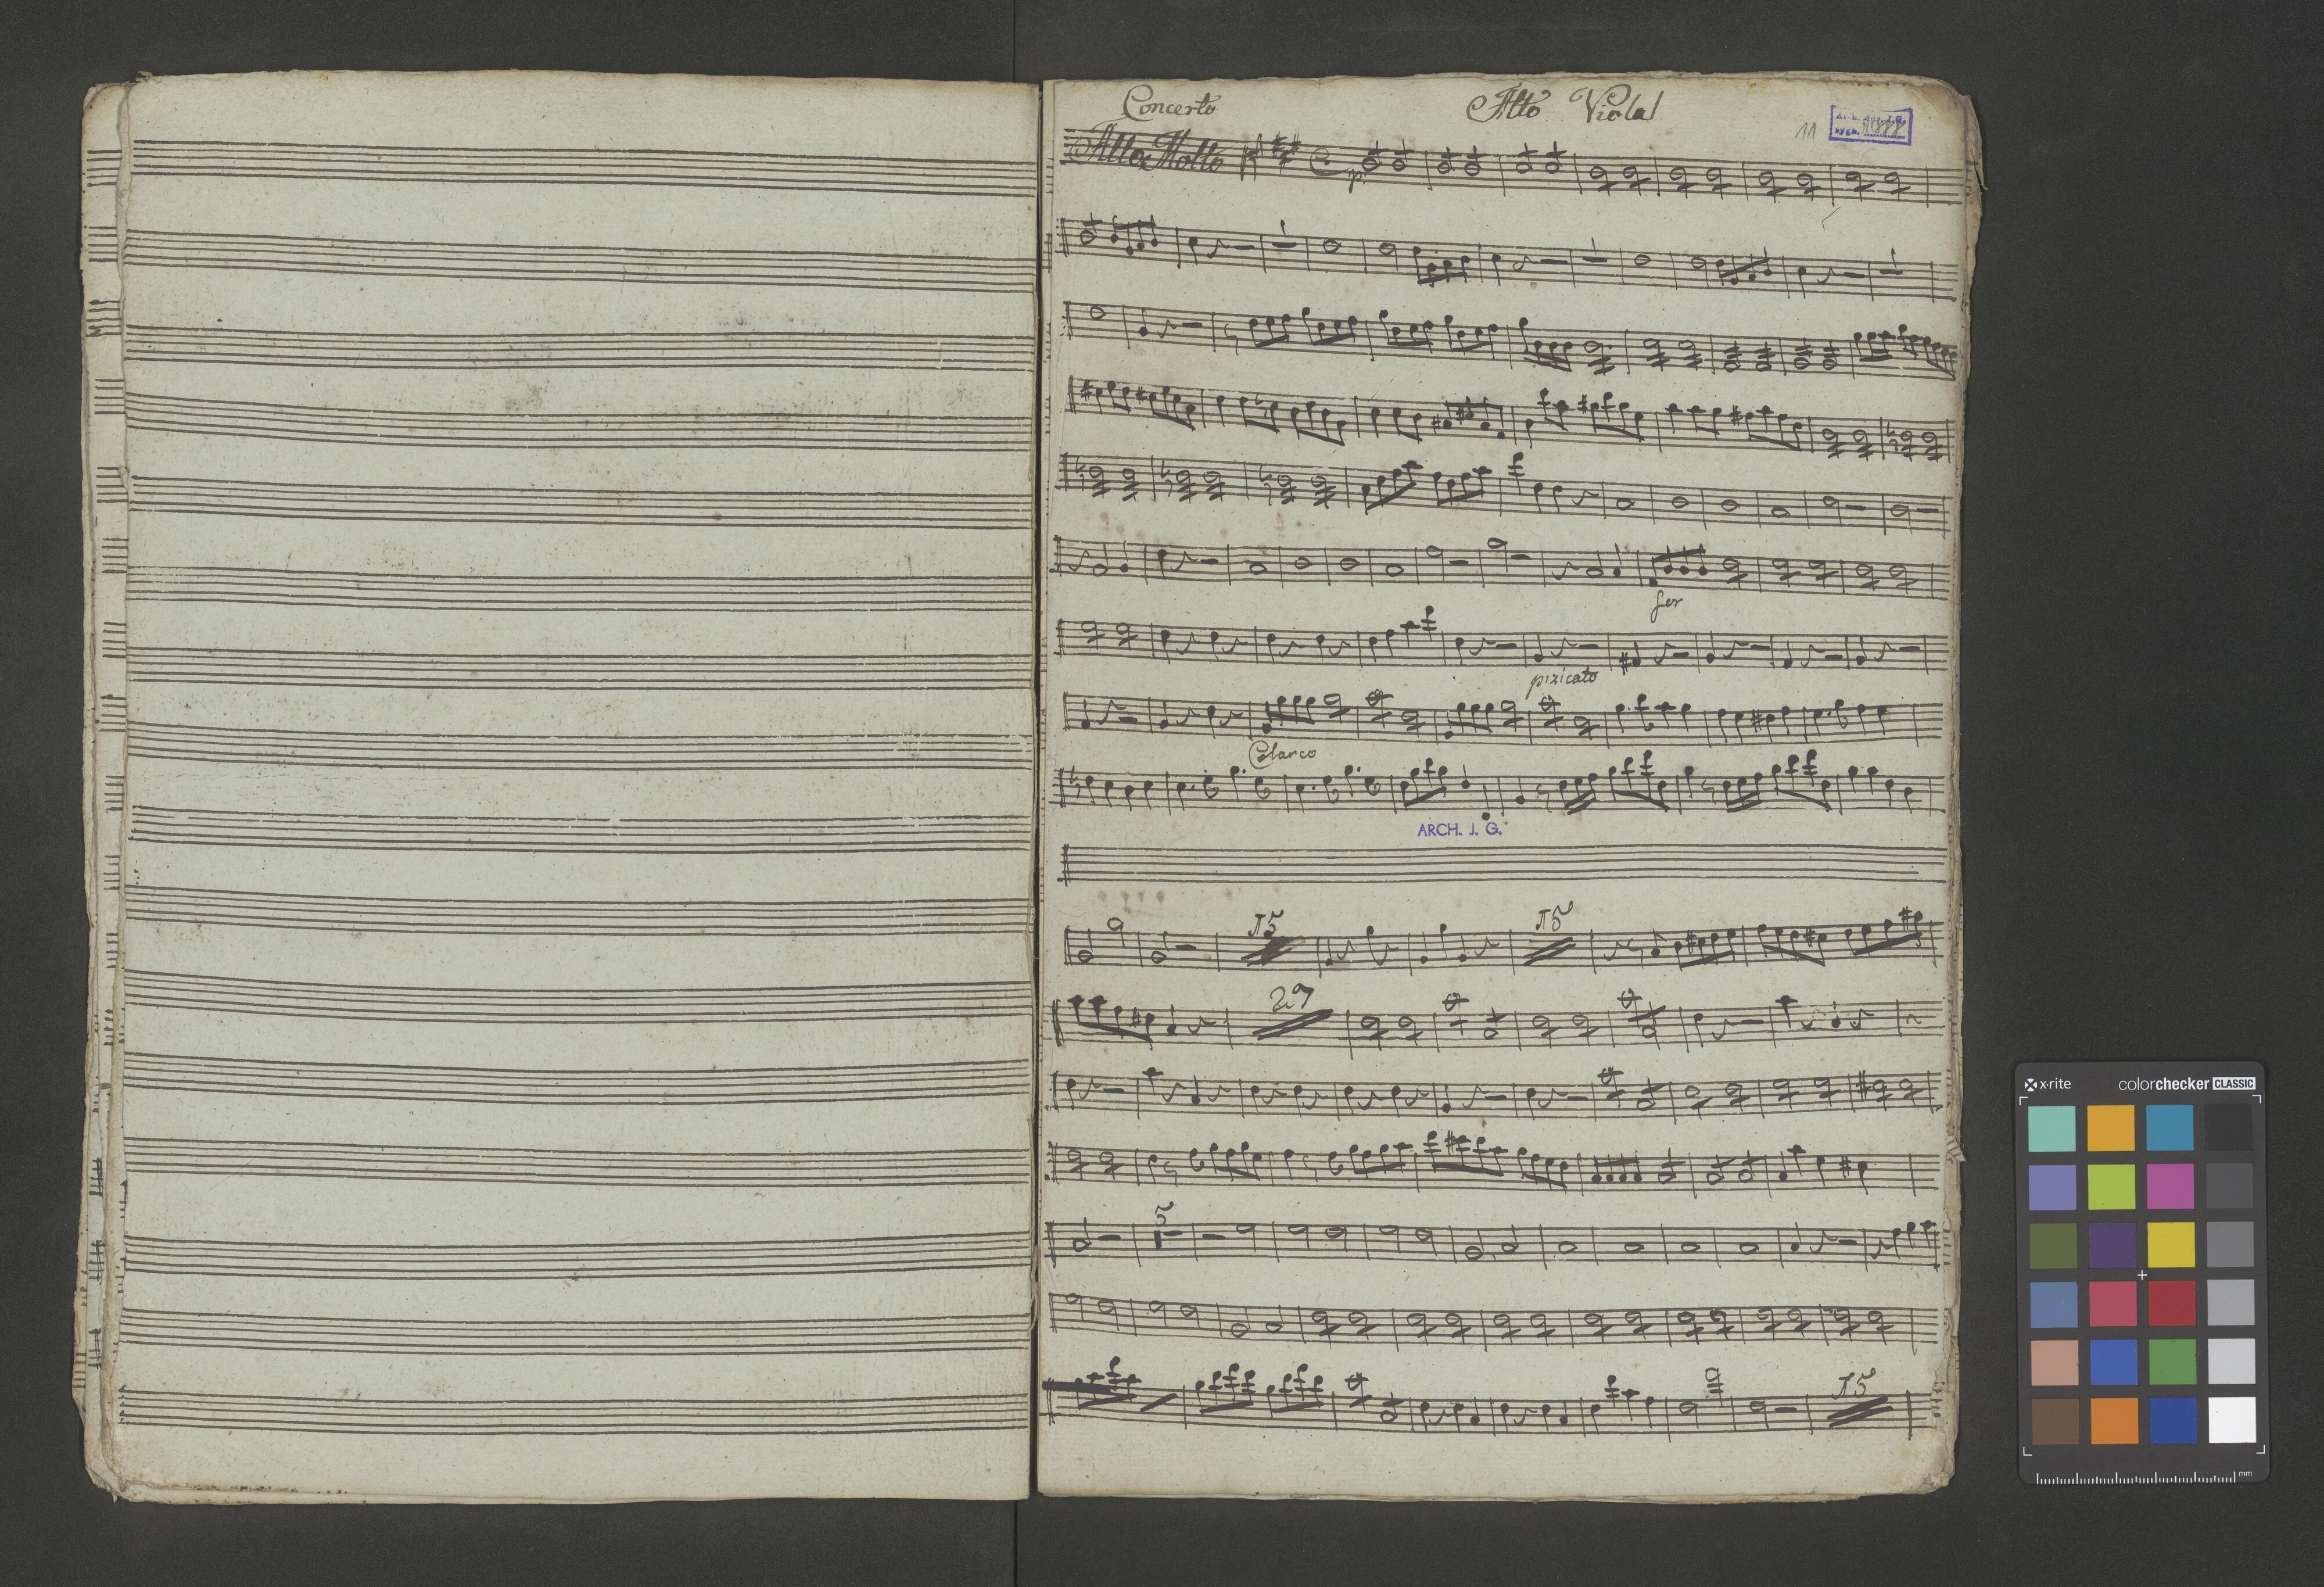 Concerto
Alto Viola
11
sygn.
Allo Molto
p.
for
pizicato
Colarco
ARCH. J. G.
15
15
29
5
15
x-rite
colorchecker CLASSIC
mm